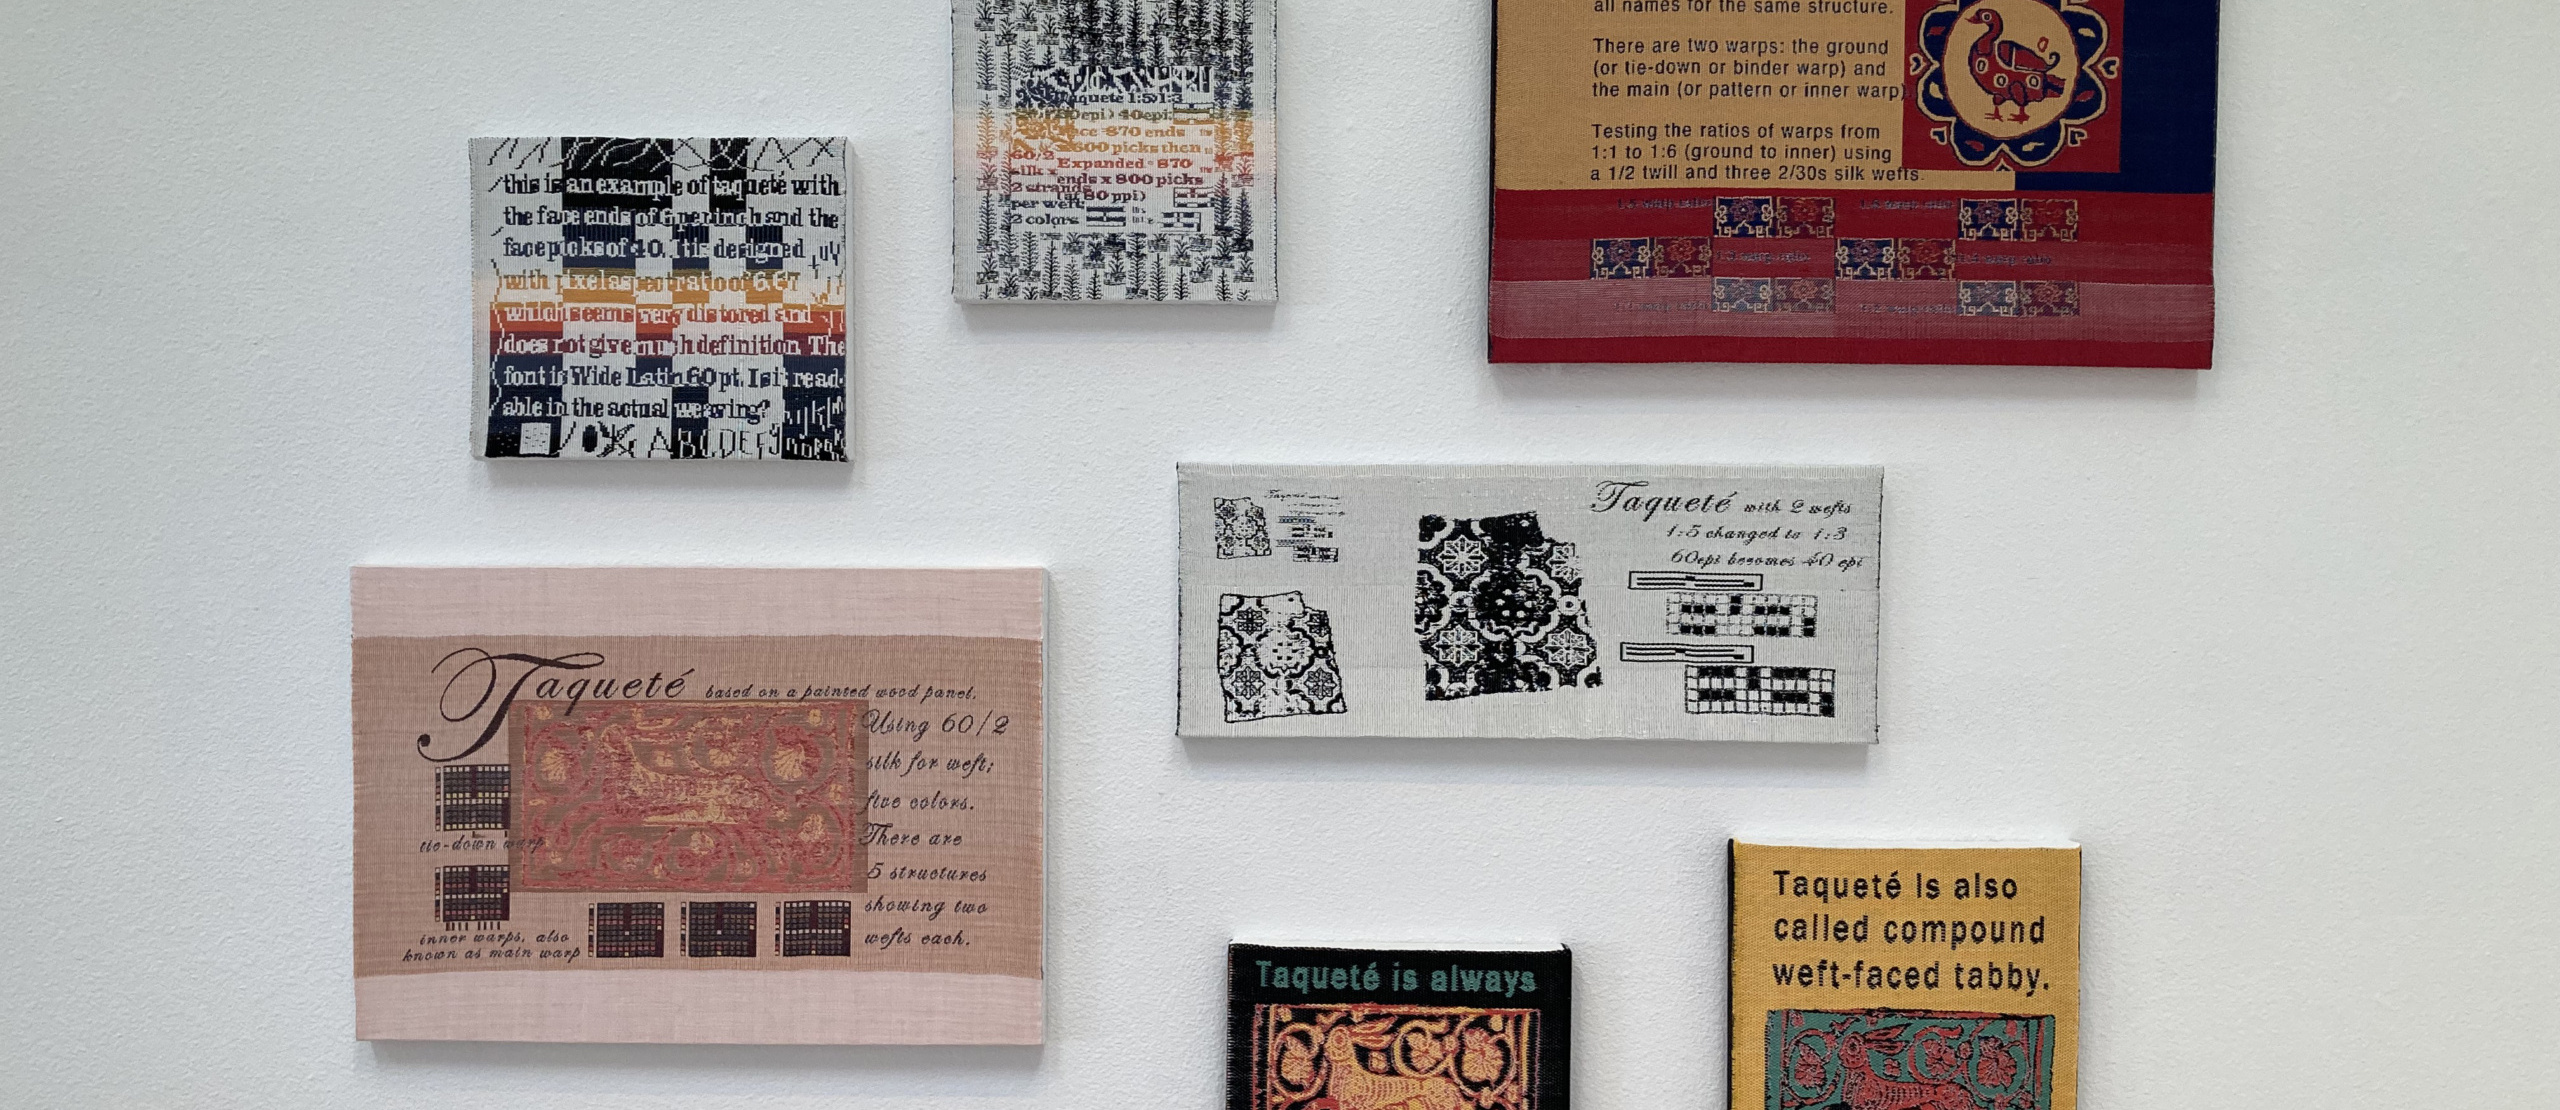 this is an example of taqueté with
the face ends of 6 per inch and the
face picks of 40. It is designed
with pixel aspect ratio of 6.67
which seems very distored and
does not give much definition. The
font is Wide Latin 60 pt. Is it read-
able in the actual weaving?
ABCDEF
Taqueté 1:5>1:3
40epi.
870 ends
600 picks then
60/2 Expanded = 870
silk x ends x 800 picks
2 strands (at 80 ppi)
per weft
2 colors
all names for the same structure.
There are two warps: the ground
(or tie-down or binder warp) and
the main (or pattern or inner warp)
Testing the ratios of warps from
1:1 to 1:6 (ground to inner) using
a 1/2 twill and three 2/30s silk wefts.
Taqueté with 2 wefts
1:5 changed to 1:3
60epi becomes 40 epi
Taqueté based on a painted wood panel.
Using 60/2
silk for weft;
five colors.
There are
5 structures
showing two
wefts each.
tie-down warp
inner warps, also
known as main warp
Taqueté is always
Taqueté is also
called compound
weft-faced tabby.